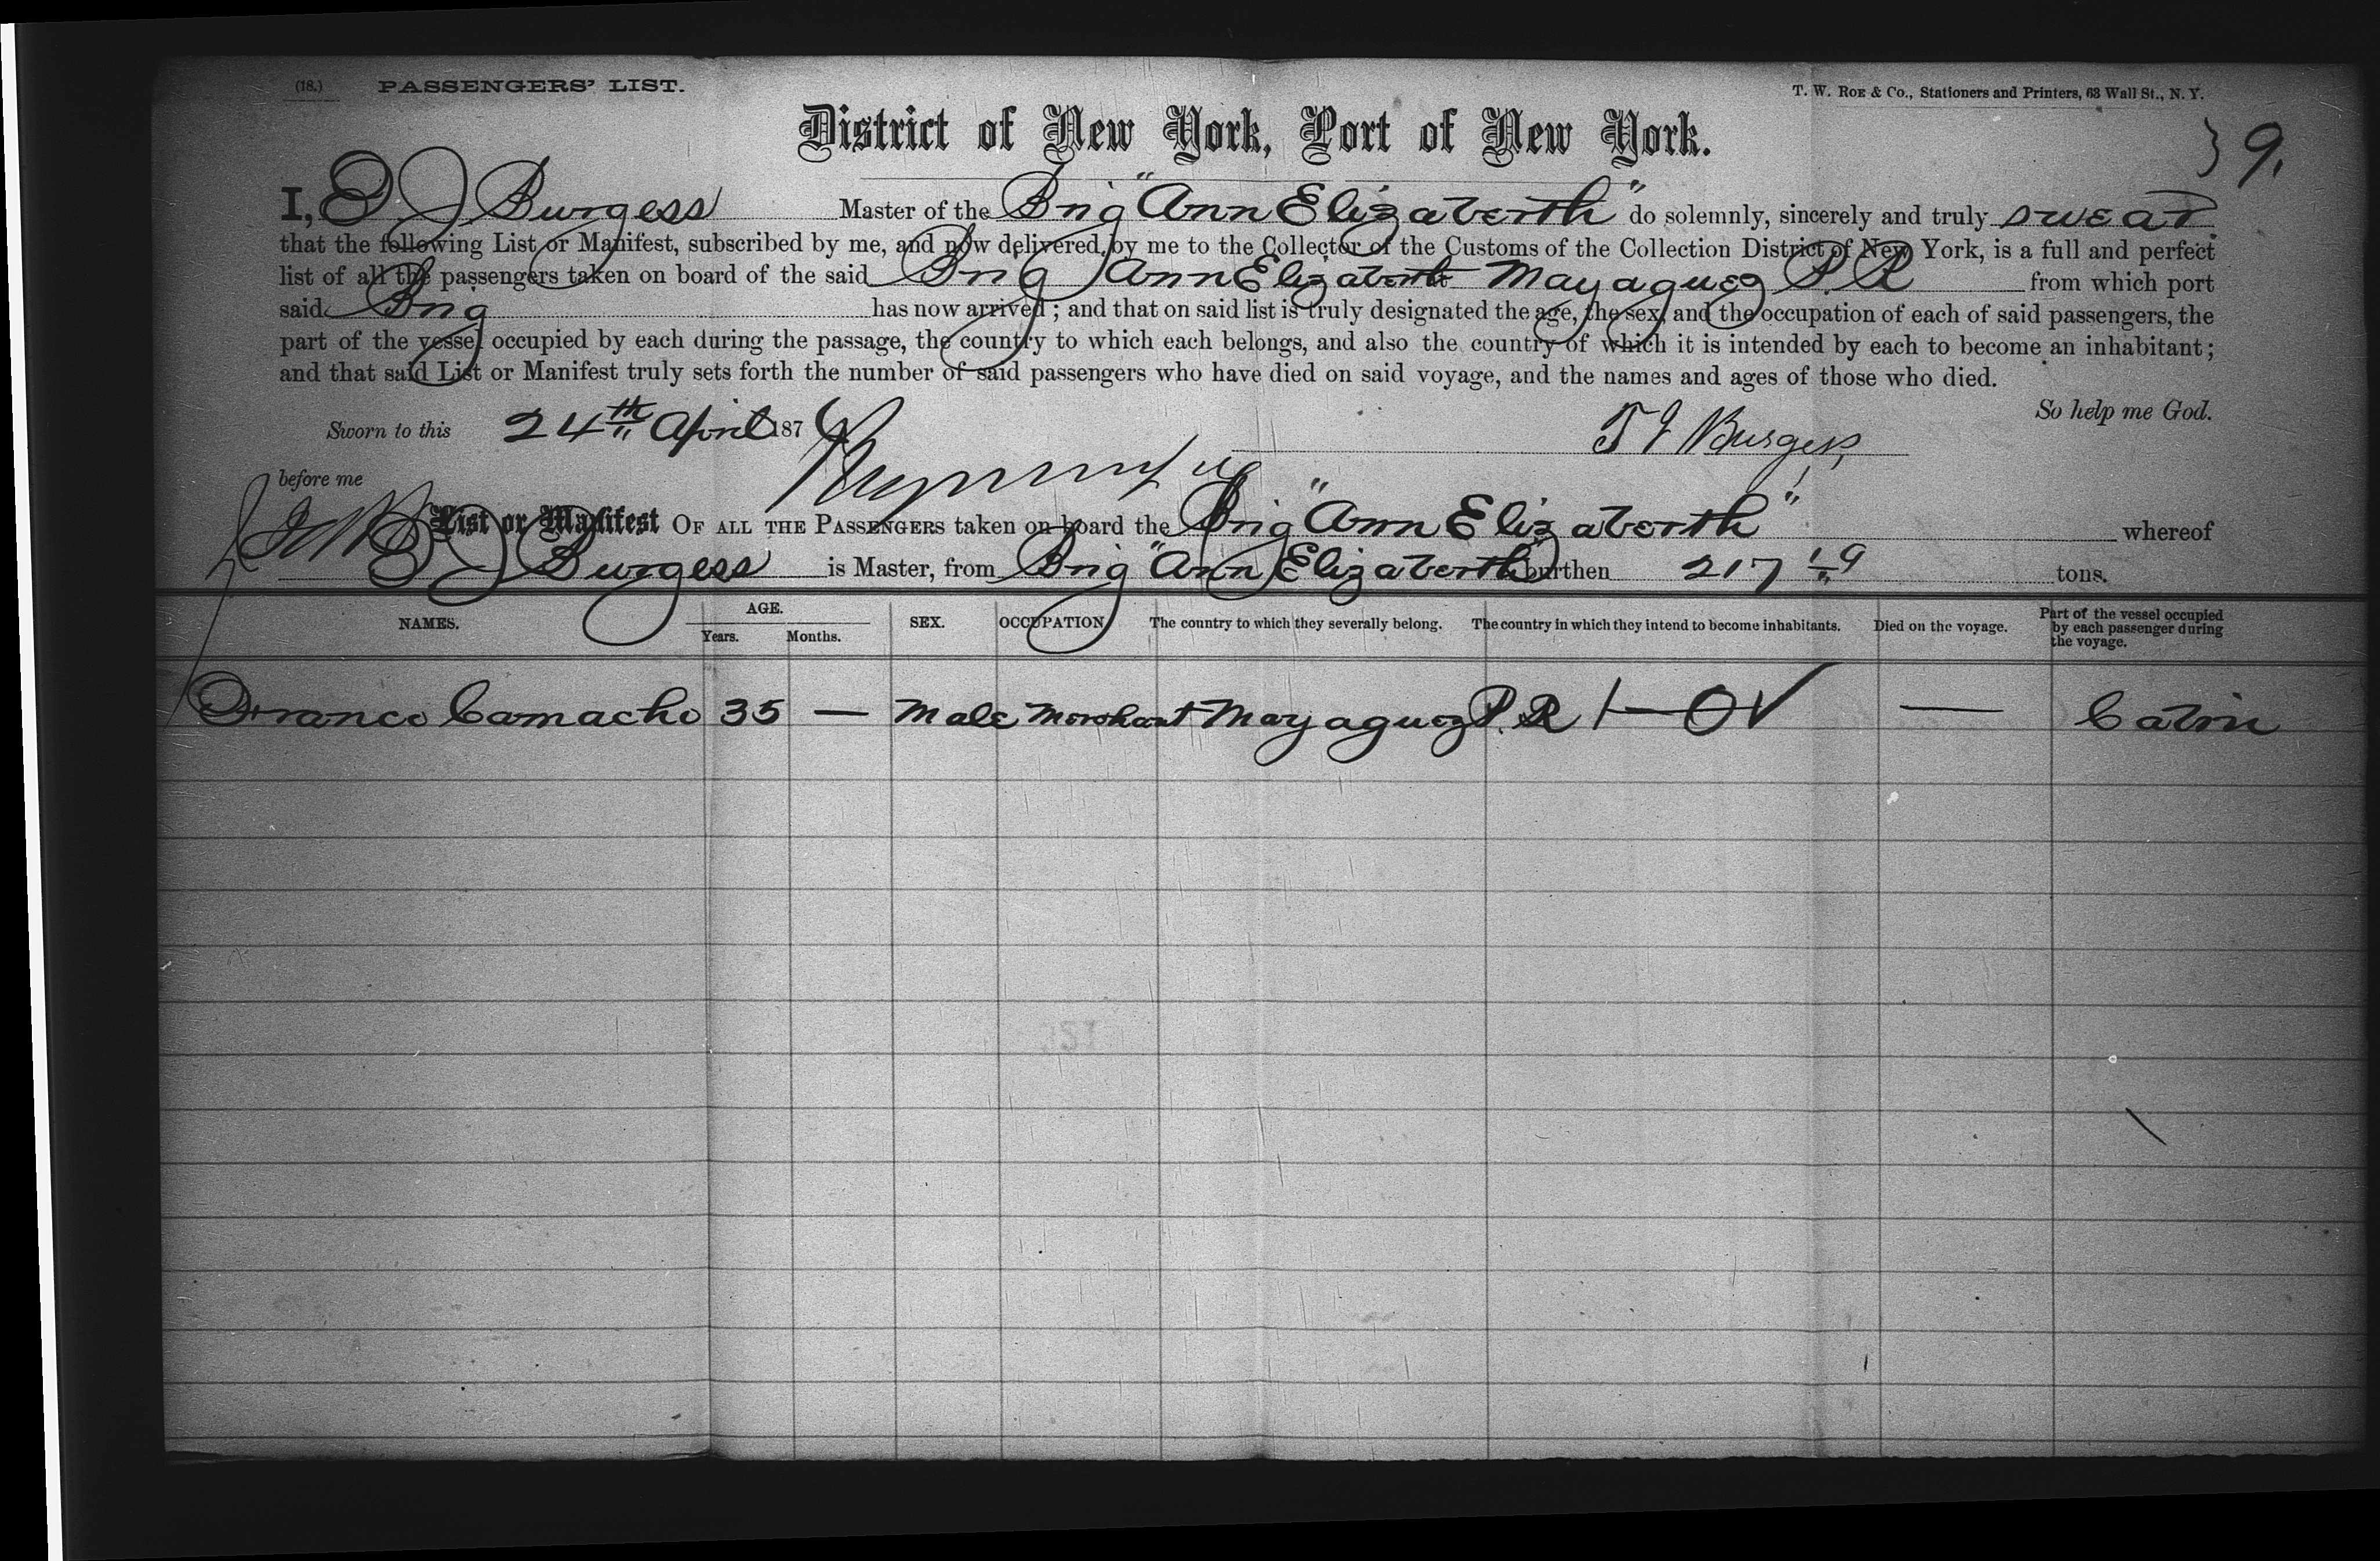 (18.) PASSENGERS' LIST.
T. W. ROE & Co., Stationers and Printers, 63 Wall St., N. Y.
District of New York, Port of New York.
9.
I, E. J. Burgess Master of the Brig "Ann Elizabeth" do solemnly, sincerely and truly swear
that the following List or Manifest, subscribed by me, and now delivered by me to the Collector of the Customs of the Collection District of New York, is a full and perfect
list of all the passengers taken on board of the said Brig Ann Elizabeth Mayaguez P. R from which port
said Brig has now arrived; and that on said list is truly designated the age, the sex, and the occupation of each of said passengers, the
part of the vessel occupied by each during the passage, the country to which each belongs, and also the country of which it is intended by each to become an inhabitant;
and that said List or Manifest truly sets forth the number of said passengers who have died on said voyage, and the names and ages of those who died.
So help me God.
Sworn to this 24th April 1876
Burgess
before me
List or Manifest OF ALL THE PASSENGERS taken on board the Brig "Ann Elizabeth" whereof
E J Burgess is Master, from Brig "Ann Elizabeth" burthen 217 19 tons.
NAMES. AGE. Years. Months. SEX. OCCUPATION. The country to which they severally belong. The country in which they intend to become inhabitants. Died on the voyage. Part of the vessel occupied by each passenger during the voyage.
Franco Camacho 35 — Male Merchant Mayaguez P. R — Cabin